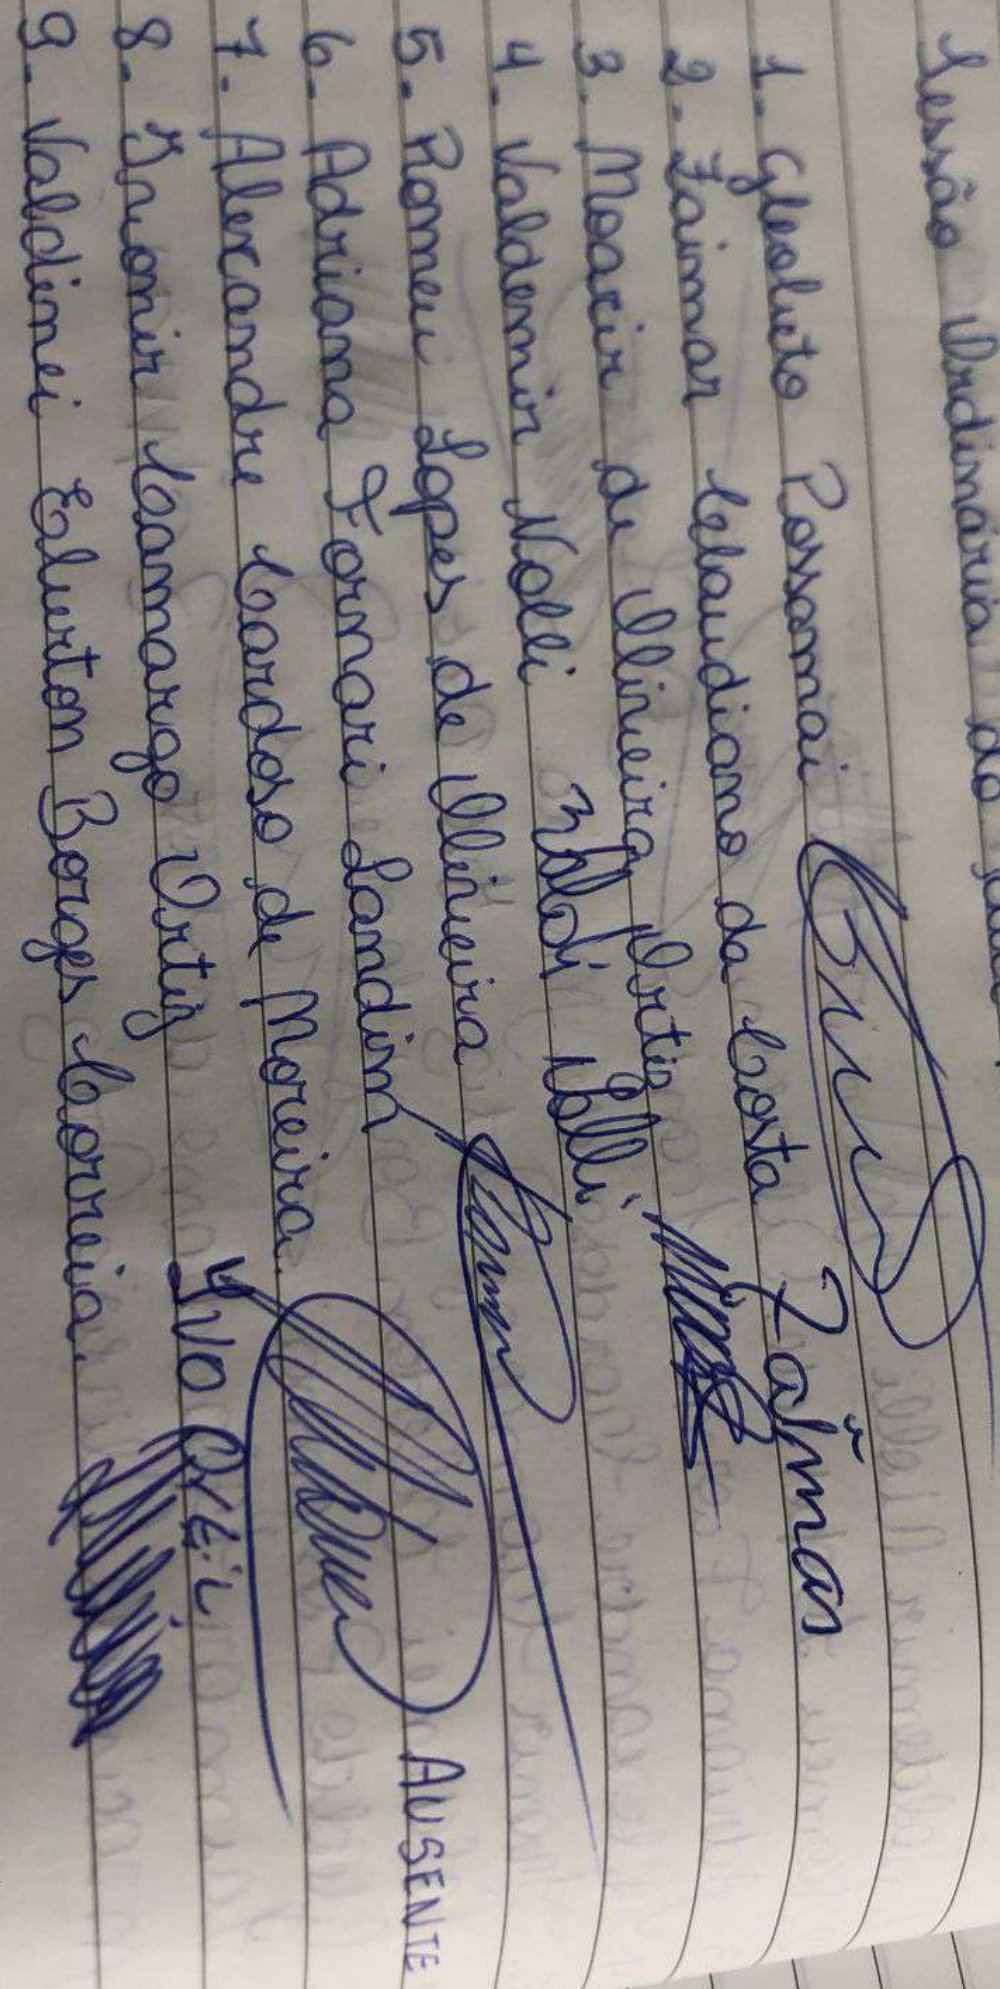 Sessão Ordinária do
1. Gleolvito Possamai
2. Zaimar Claudiano da Costa Zaimar
3. Moacir de Oliveira Ortiz
4. Valdemir Nolli Valdi Nolli
5. Romeu Lopes de Oliveira
6. Adriana Fornari Landim AUSENTE
7. Alexandre Cardoso de Moreira
8. Ivonir Camargo Ortiz IVO
9. Valdinei Elverton Borges Correia.